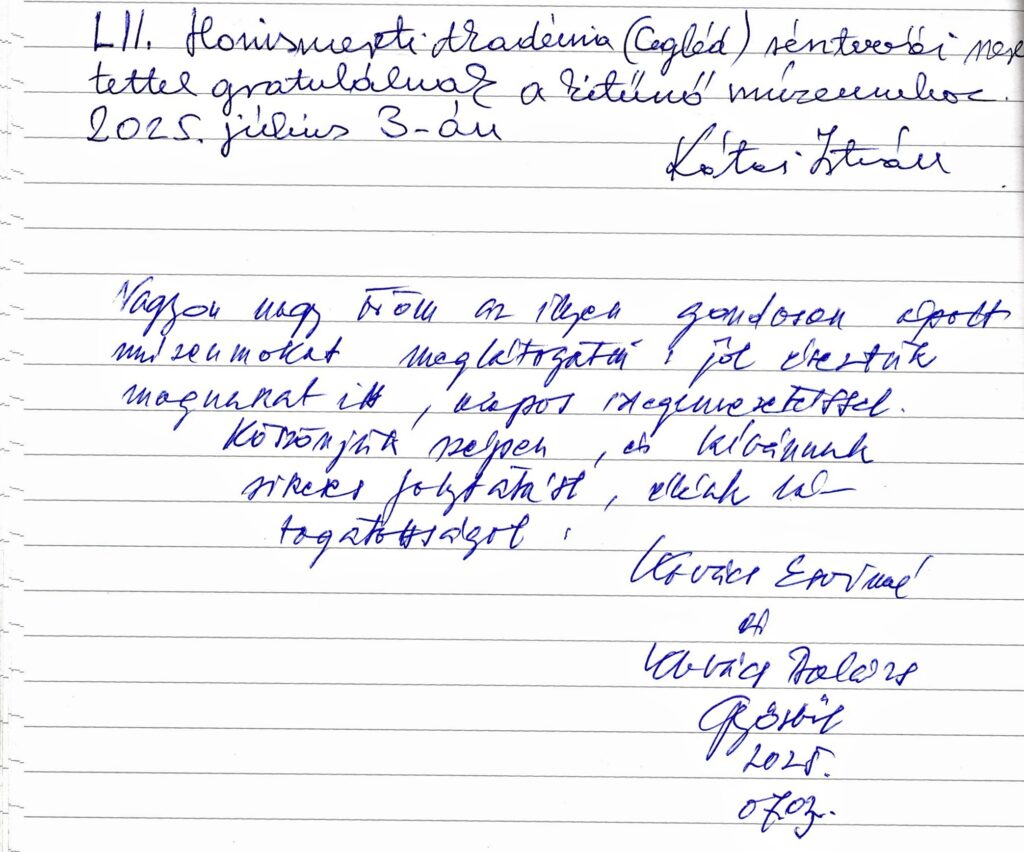 LII. Honismereti Akadémia (Cegléd) résztvevői
tettel gratulálnak a kitűnő múzeumhoz.
2025. július 3-án
István
Nagyon nagy öröm az ilyen gondosan ápolt
múzeumokat meglátogatni; jól éreztük
magunkat itt, alapos idegenvezetéssel.
Köszönjük szépen, és kívánunk
sikeres folytatást, élénk lá-
togatottságot.
Kovács Ervinné
és
Kovács Balázs
2025.
07.03.